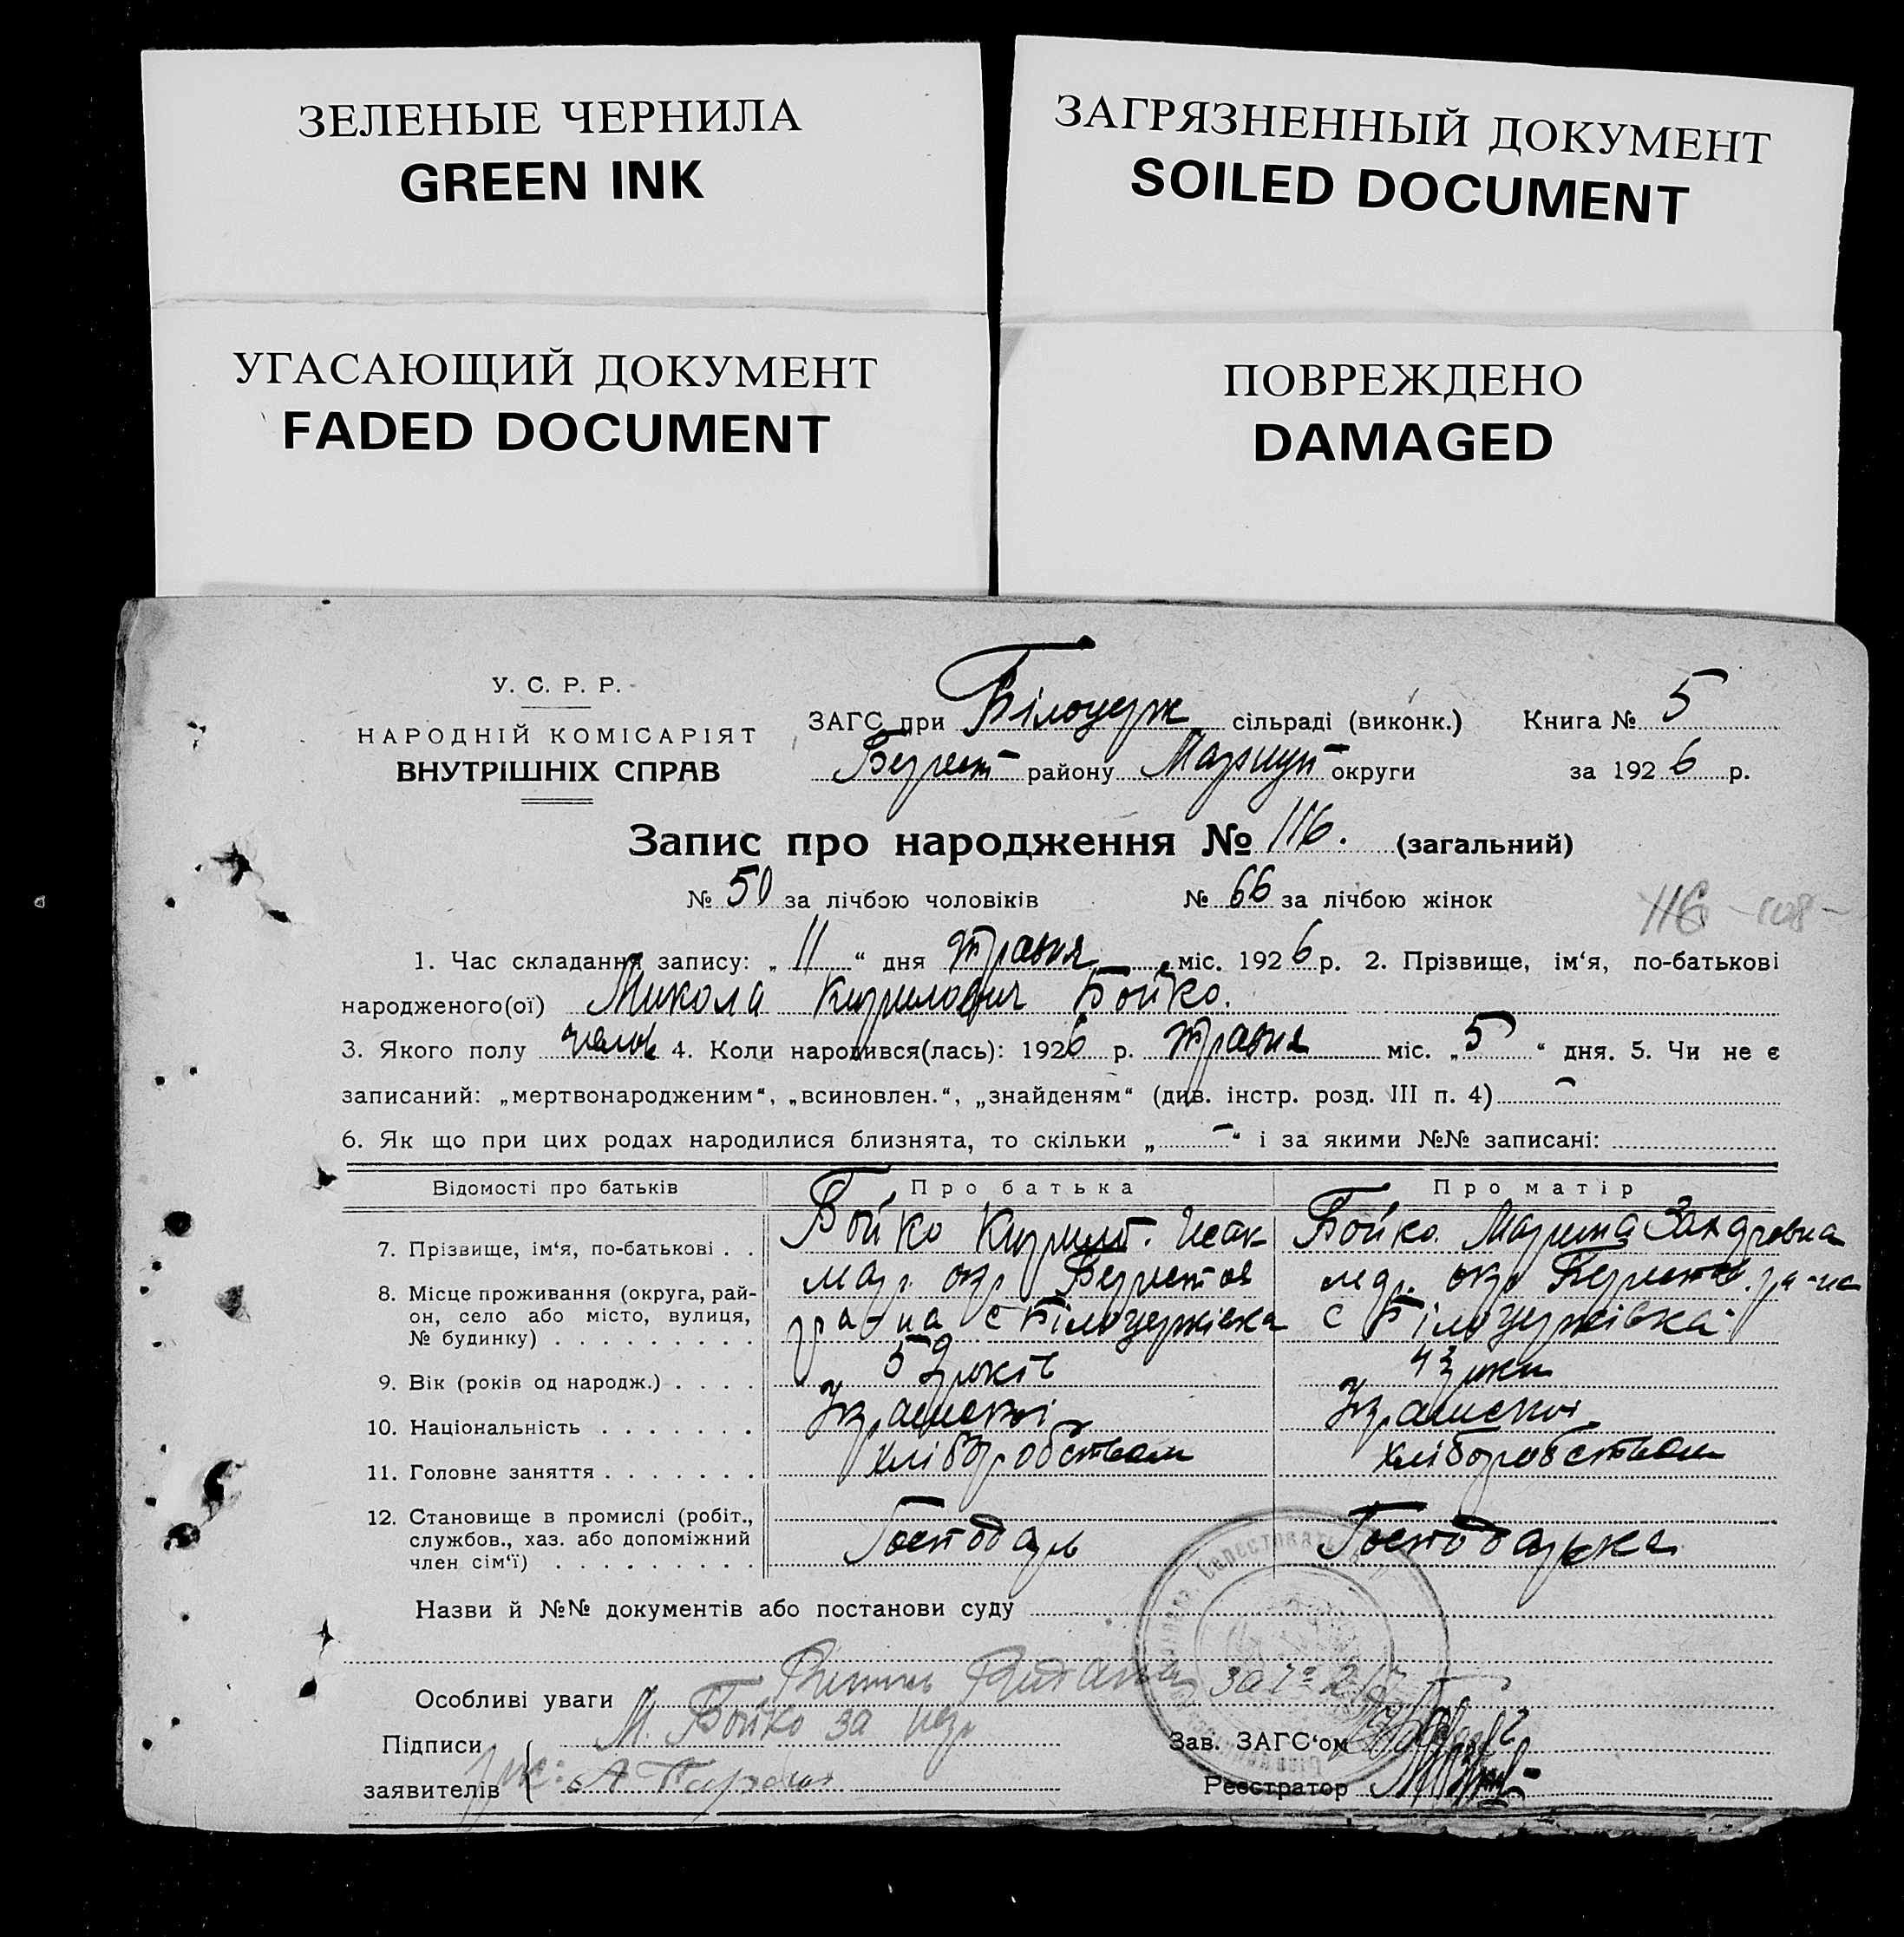 ЗЕЛЕНЫЕ ЧЕРНИЛА
GREEN INK
ЗАГРЯЗНЕННЫЙ ДОКУМЕНТ
SOILED DOCUMENT
УГАСАЮЩИЙ ДОКУМЕНТ
FADED DOCUMENT
ПОВРЕЖДЕНО
DAMAGED
У. С. Р. Р.
НАРОДНІЙ КОМІСАРІЯТ
ВНУТРІШНІХ СПРАВ
ЗАГС при Білоцерк сільраді (виконк.) Книга № 5
Берест району Маріуп округи за 1926 р.
Запис про народження № 116. (загальний)
№ 50 за лічбою чоловіків № 66 за лічбою жінок
116 - 108 -
1. Час складання запису: „11“ дня травня міс. 1926 р. 2. Прізвище, ім‘я, по-батькові
народженого(ої) Микола Кирилович Бойко.
3. Якого полу чолов 4. Коли народився(лась): 1926 р. травня міс. „5“ дня. 5. Чи не є
записаний: „мертвонародженим“, „всиновлен.“, „знайденям“ (див. інстр. розд. III п. 4) -
6. Як що при цих родах народилися близнята, то скільки „-“ і за якими №№ записані:
Відомості про батьків Про батька Про матір
7. Прізвище, ім‘я, по-батькові . . Бойко Кирил. Исак Бойко Марина
8. Місце проживання (округа, рай- мар. окр Берестов мар. окр Берестов. ра-на
он, село або місто, вулиця, ра-на с Білоцерківка с Білоцерківка
№ будинку) . . . . . . . . .
9. Вік (років од народж.) . . . . 59 років 43 роки
10. Національність . . . . . . . Українскої Українскої
11. Головне заняття . . . . . . . хліборобством хліборобством
12. Становище в промислі (робіт., Господарь Господарька
службов., хаз. або допоміжний
член сім‘ї) . . . . . . . . .
Назви й №№ документів або постанови суду
Особливі уваги
Підписи М. Бойко за Зав. ЗАГС‘ом
заявителів Реєстратор